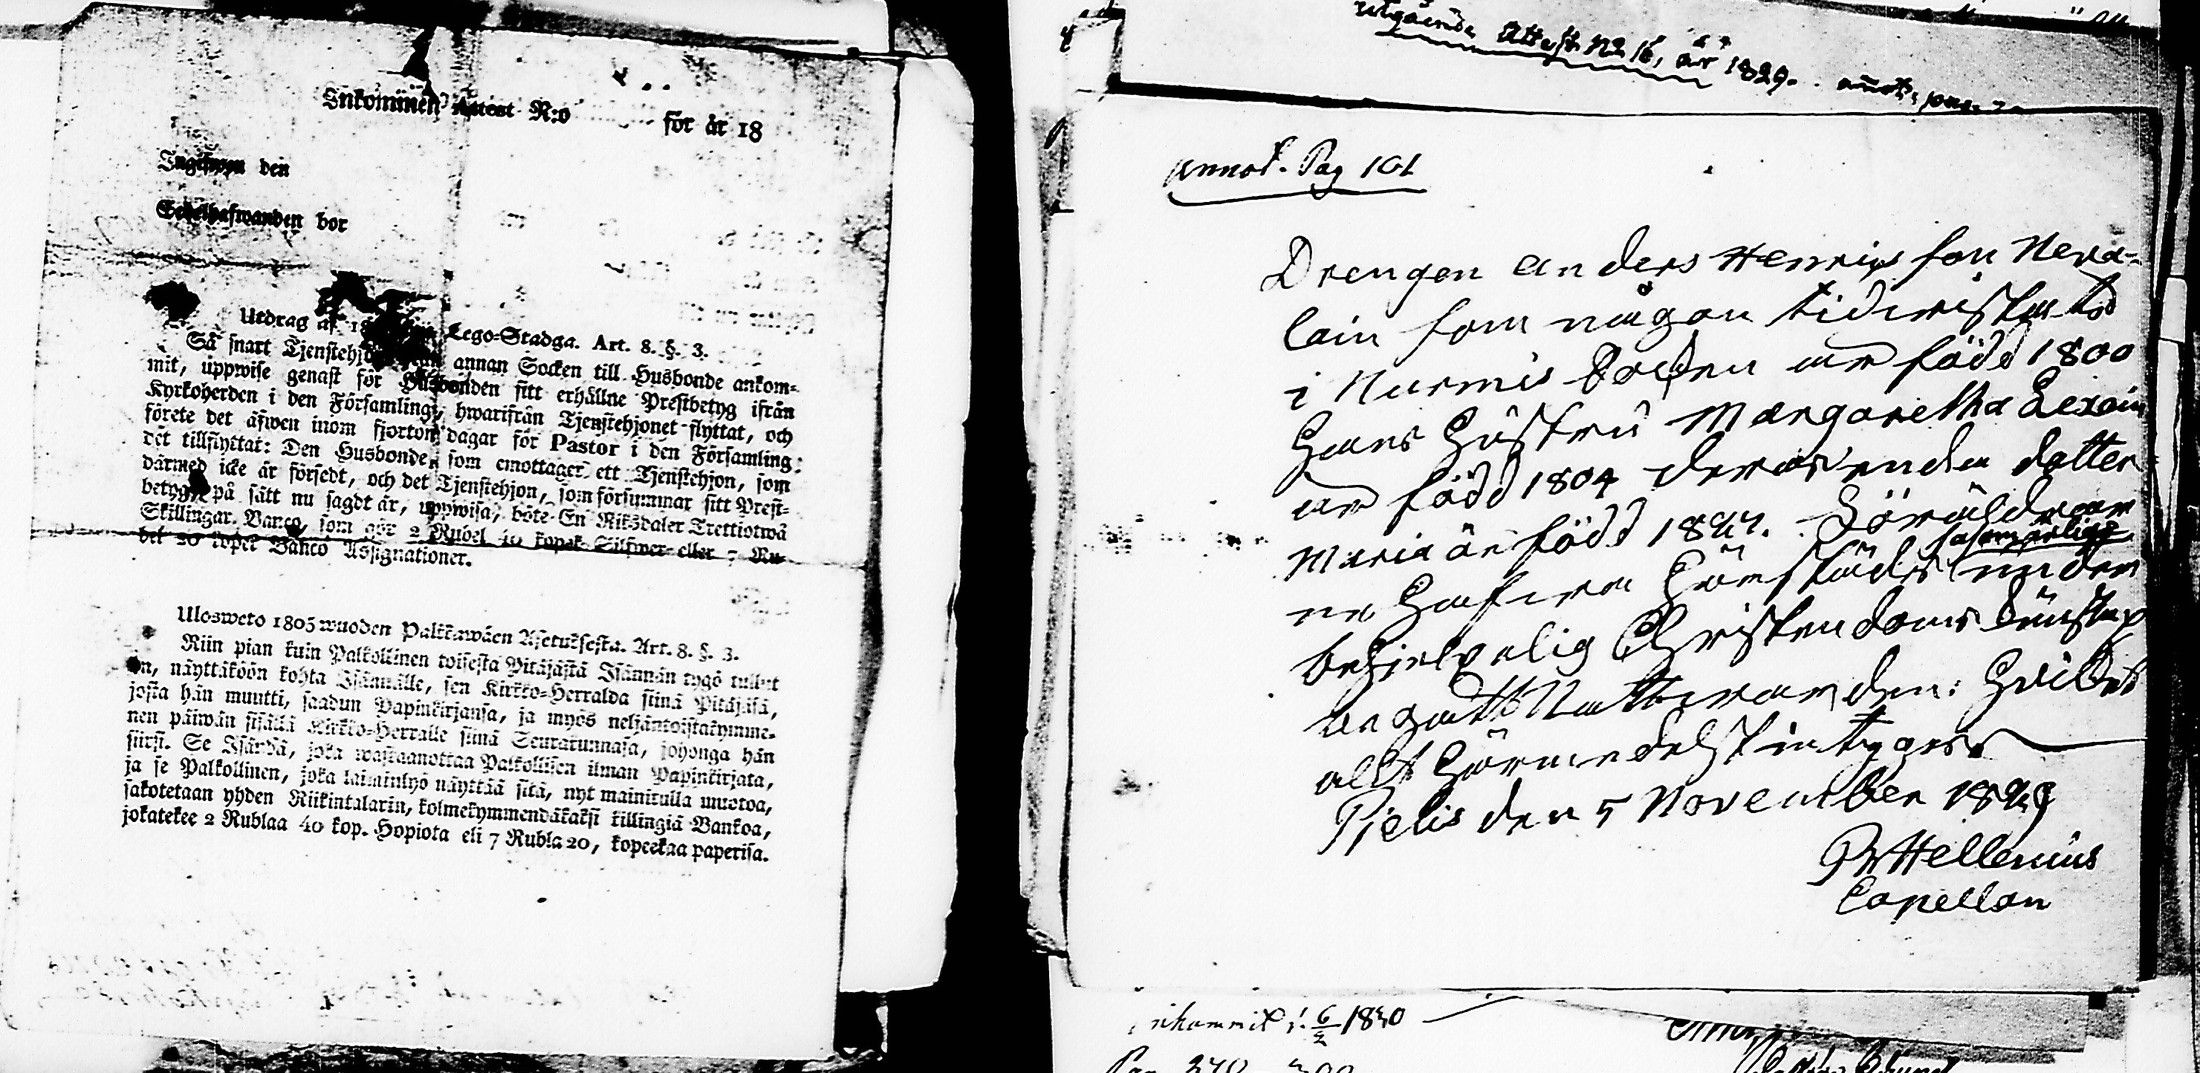 Inkommen Attest N:o för år 18
Ingifwen den
Sedelhafwanden bor
Utdrag af 18 Lego-Stadga. Art. 8. §. 3.
Så snart Tjenstehjon annan Socken till Husbonde ankom-
mit, uppwise genast för Husbonden sitt erhållne Prestbetyg ifrån
Kyrkoherden i den Församling, hwarifrån Tjenstehjonet flyttat, och
förete det äfwen inom fjorton dagar för Pastor i den Församling:
det tillflyttat: Den Husbonde, som emottager ett Tjenstehjon, som
därmed icke är försedt, och det Tjenstehjon, som försummar sitt Prest-
betyg, på sätt nu sagdt är, uppwisa, böte En Riksdaler Trettiotwå
Skillingar Banco, som gör 2 Rubel 40 kopek Silfwer eller 7 Ru-
bel 20 kopek Banco Assignationer.
Ulosweto 1805 wuoden Palkkawäen Asetuksesta. Art. 8. §. 3.
Niin pian kuin Palkollinen toisesta Pitäjästä Isännän tygö tullut
on, näyttäköön kohta Isännälle, sen Kirkko-Herralda siinä Pitäjäsä,
josta hän muutti, saadun Papinkirjansa, ja myös neljäntoistakymme-
nen päiwän sisällä Kirkko-Herralle siinä Seurakunnasa, johonga hän
siirsi. Se Isändä, joka wastaanottaa Palkollisen ilman Papinkirjata,
ja se Palkollinen, joka laiminlyö näyttää sitä, nyt mainitulla muotoa,
sakotetaan yhden Riikintalarin, kolmekymmendäkaksi killingiä Bankoa,
jokatekee 2 Rublaa 40 kop. Hopiota eli 7 Rubla 20, kopeekaa paperisa.
utgående Attest No 16, år 1829. annot: pag.
annot. Pag 101
Drengen Anders Henrix son Neva-
lain som någon tid wistats
i Nurmis Socken är född 1800
Hans Hustru Margaretha Lexain
är född 1804 deras enda dotter
Maria är född 1827. Föräldrar
ne hafwa härstädes under
behjelpelig Christendoms kunskap
begått Nattwarden: Hvilket
allt härmedelst intygas
Pjelis den 5 November 1829
Hellenius
Capellan
inkommit 6/2 1830